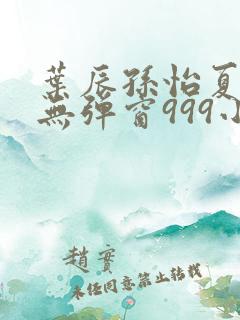 葉辰孫怡夏
無彈窗999小
趙實
未任同意禁止转载